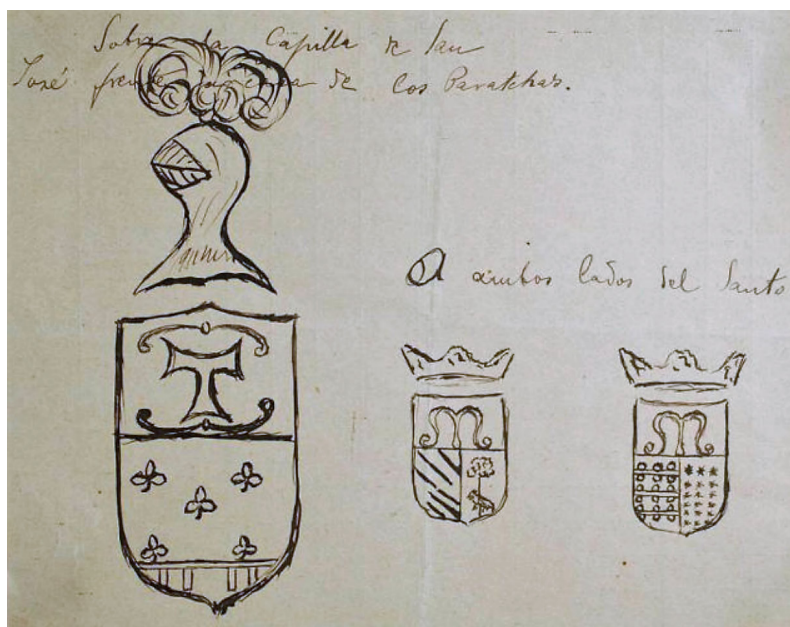 Sobre la Capilla de San
José frente de Los Paratchas.
A ambos lados del Santo
T
M
M